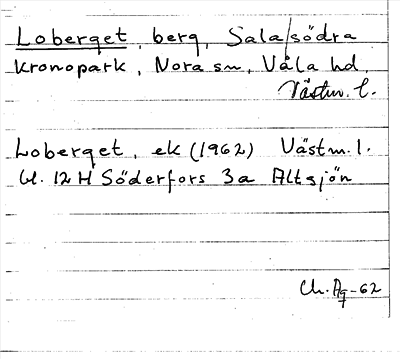 Loberget, berg, Sala/södra
kronopark, Nora sn, Våla hd,
Västm. l.
Loberget, ek (1962) Västm. l.
bl. 12 H Söderfors 3a Altsjön
Ch. Ag-62